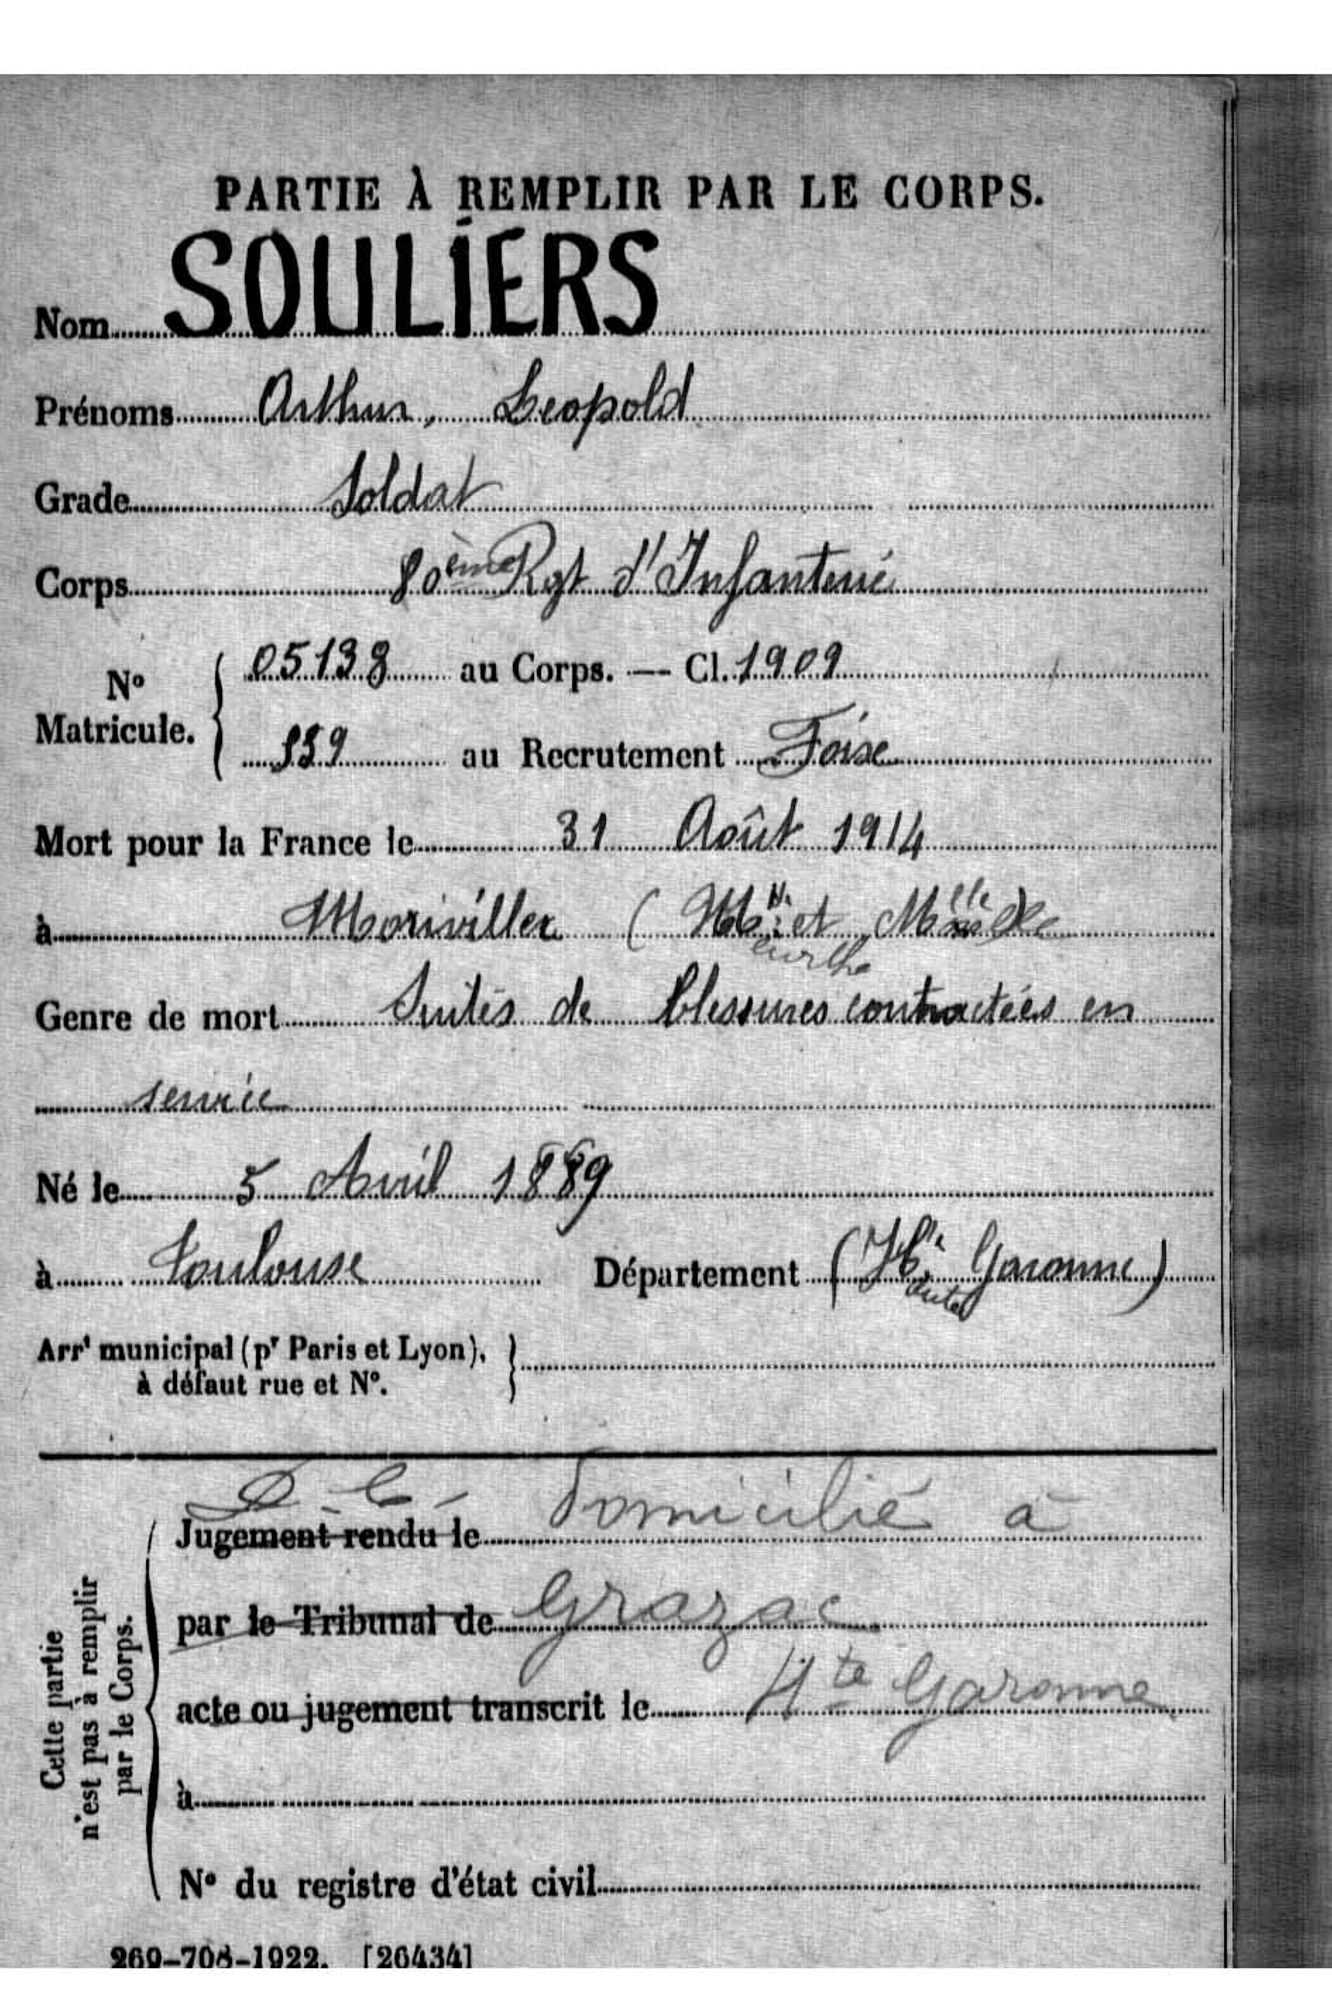 PARTIE À REMPLIR PAR LE CORPS.
Nom SOULIERS
Prénoms Arthur, Léopold
Grade Soldat
Corps 80ème Rgt d'Infanterie
N° Matricule. { 05138 au Corps. — Cl. 1909
559 au Recrutement
Mort pour la France le 31 Août 1914
à Moriviller ( et Mselle
eurthe
Genre de mort Suites de blessures contractées en
service
Né le 5 Avril 1889
à Toulouse Département (Hte Garonne)
aute
Arrt municipal (pr Paris et Lyon), }
à défaut rue et N°.
Jugement rendu le domicilié à
par le Tribunal de Grazac
acte ou jugement transcrit le Hte Garonne
à
N° du registre d'état civil
Cette partie
n'est pas à remplir
par le Corps.
269-708-1922. [26434]